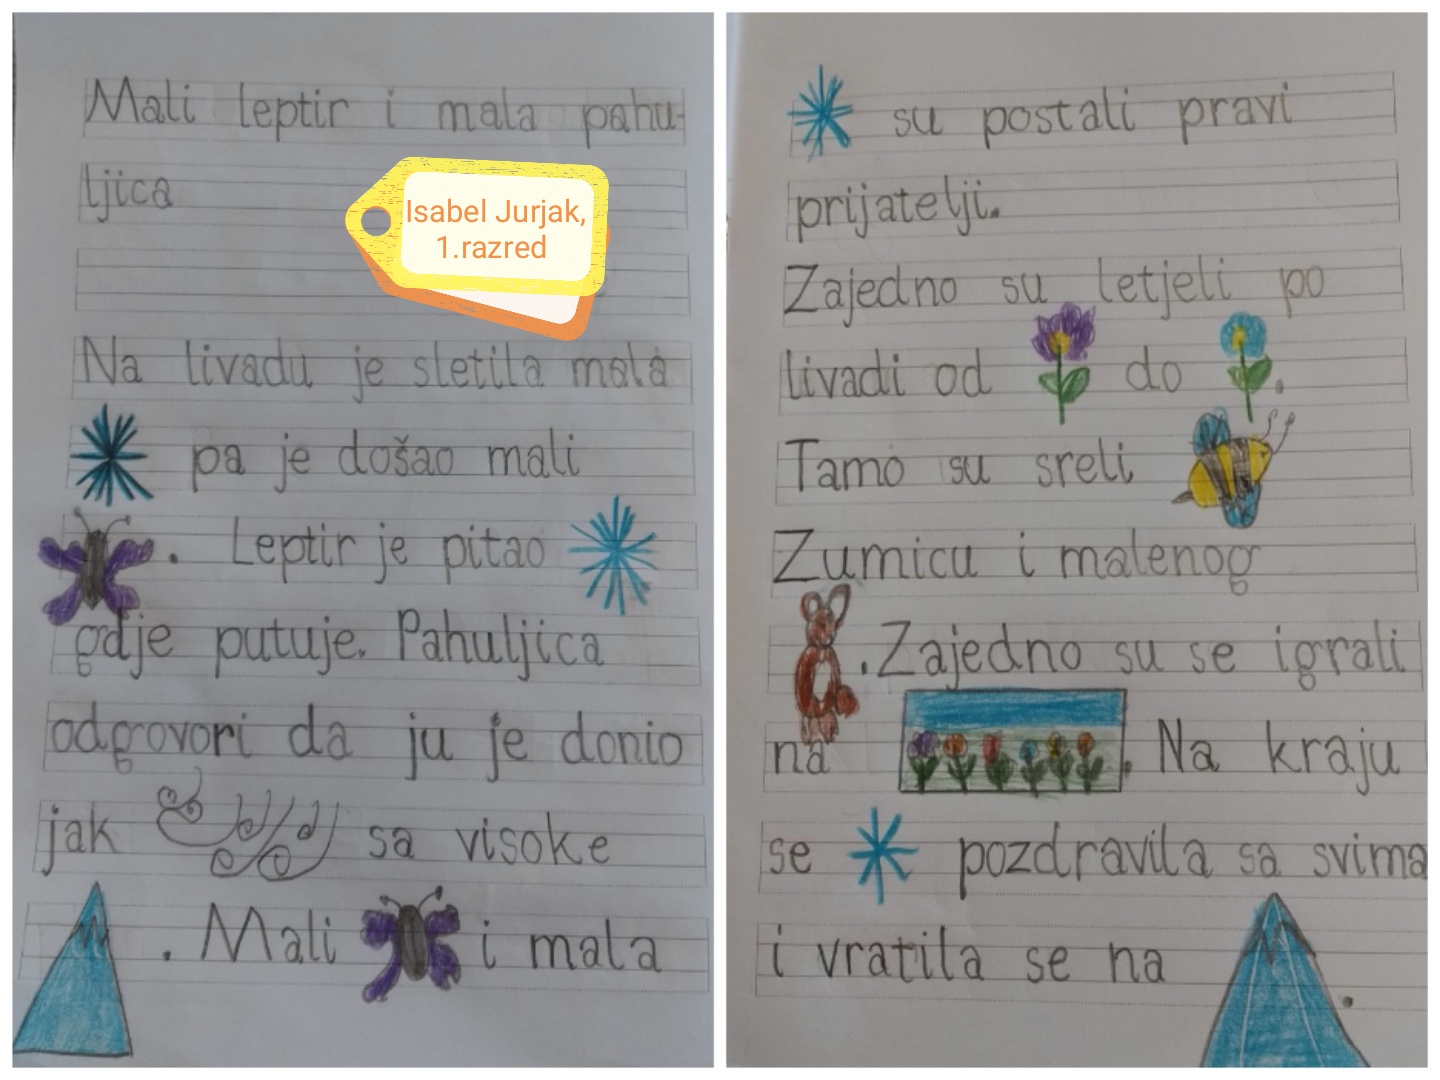 Mali leptir i mala pahu-
ljica
Isabel Jurjak,
1.razred
Na livadu je sletila mala
pa je došao mali
. Leptir je pitao
gdje putuje. Pahuljica
odgovori da ju je donio
jak sa visoke
. Mali i mala
su postali pravi
prijatelji.
Zajedno su letjeli po
livadi od do .
Tamo su sreli
Zumicu i malenog
. Zajedno su se igrali
na . Na kraju
se pozdravila sa svima
i vratila se na .